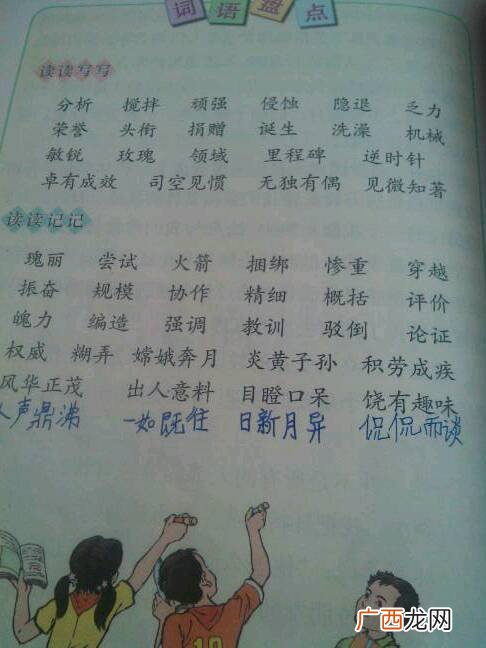 词语盘点
读读写写
分析 搅拌 顽强 侵蚀 隐退 乏力
荣誉 头衔 捐赠 诞生 洗澡 机械
敏锐 玫瑰 领域 里程碑 逆时针
卓有成效 司空见惯 无独有偶 见微知著
读读记记
瑰丽 尝试 火箭 捆绑 惨重 穿越
振奋 规模 协作 精细 概括 评价
魄力 编造 强调 教训 驳倒 论证
权威 糊弄 嫦娥奔月 炎黄子孙 积劳成疾
风华正茂 出人意料 目瞪口呆 饶有趣味
人声鼎沸 一如既往 日新月异 侃侃而谈
10
广西龙网